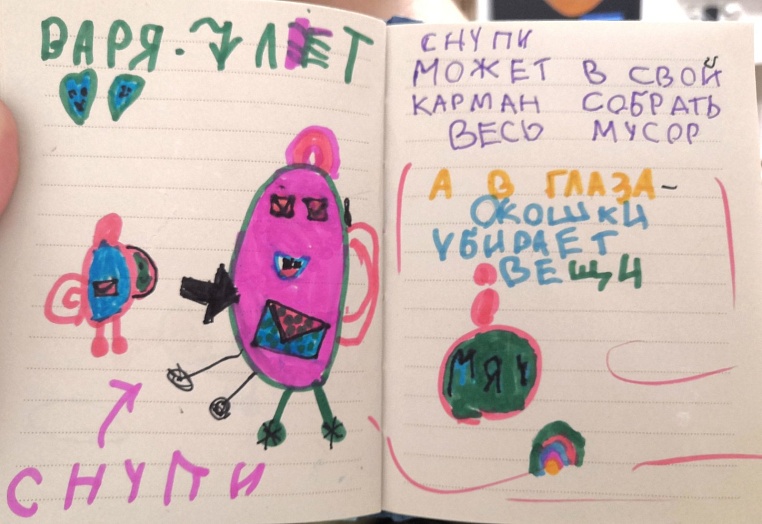 ВАРЯ. 7 ЛЕТ
СНУПИ
СНУПИ
МОЖЕТ В СВОЙ
КАРМАН СОБРАТЬ
ВЕСЬ МУСОР
А В ГЛАЗА-
ОКОШКИ
УБИРАЕТ
ВЕЩИ
МЯУ